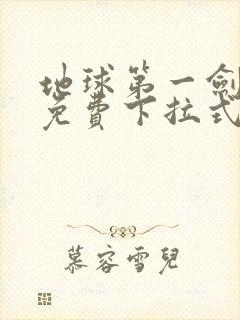 地球第一劍
免費下拉式
慕容雪兒